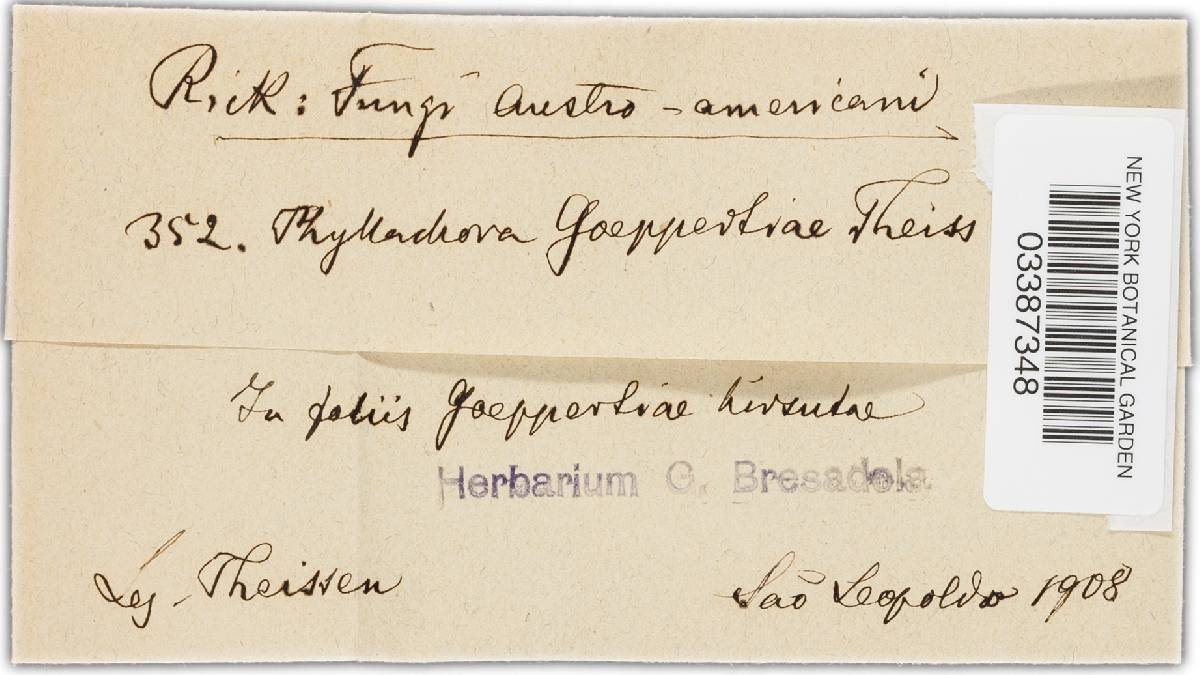 Rick: Fungi austro-americani
352. Phyllachora Goeppertiae Theiss
In foliis Goeppertiae hirsutae
Herbarium G. Bresadola
Leg. Theissen
São Leopoldo 1908
NEW YORK BOTANICAL GARDEN
03387348